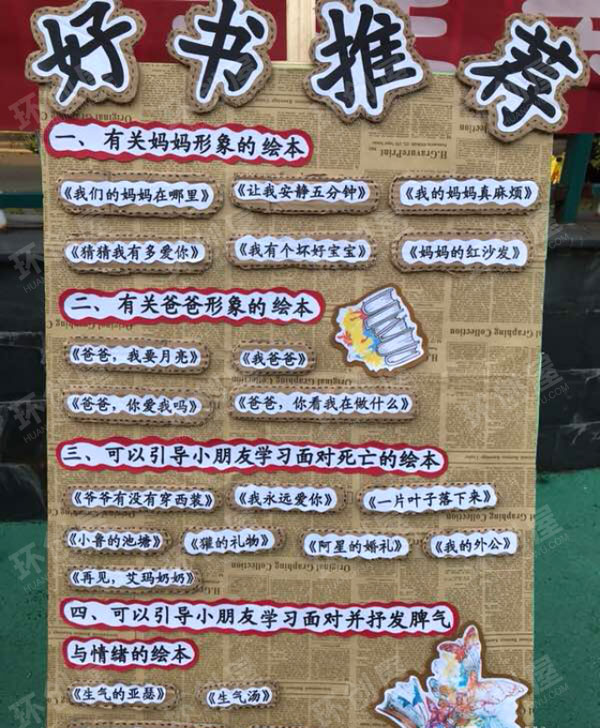 好书推荐
一、有关妈妈形象的绘本
《我们的妈妈在哪里》 《让我安静五分钟》 《我的妈妈真麻烦》
《猜猜我有多爱你》 《我有个坏好宝宝》 《妈妈的红沙发》
二、有关爸爸形象的绘本
《爸爸，我要月亮》 《我爸爸》
《爸爸，你爱我吗》 《爸爸，你看我在做什么》
三、可以引导小朋友学习面对死亡的绘本
《爷爷有没有穿西装》 《我永远爱你》 《一片叶子落下来》
《小鲁的池塘》 《獾的礼物》 《阿星的婚礼》 《我的外公》
《再见，艾玛奶奶》
四、可以引导小朋友学习面对并抒发脾气
与情绪的绘本
《生气的亚瑟》 《生气汤》